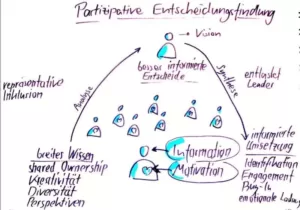 Partizipative Entscheidungsfindung
Vision
besser informierte
Entscheide
repräsentative
Inklusion
Analyse
Synthese
entlastet
Leader
breites Wissen
Shared Ownership
Kreativität
Diversität
Perspektiven
Information
Motivation
informierte
Umsetzung
Identifikation
Engagement
Buy-In
emotionale Ladung